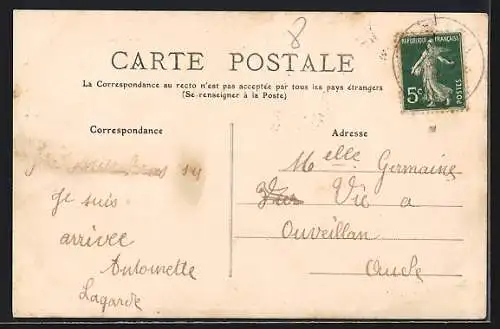 8
CARTE POSTALE
RÉPUBLIQUE FRANÇAISE
5c
POSTES
La Correspondance au recto n'est pas acceptée par tous les pays étrangers
(Se renseigner à la Poste)
Correspondance
Adresse
Melle Germaine
Vié a
Ouveillan
Aude
Je suis
arrivée
Antoinette
Lagarde